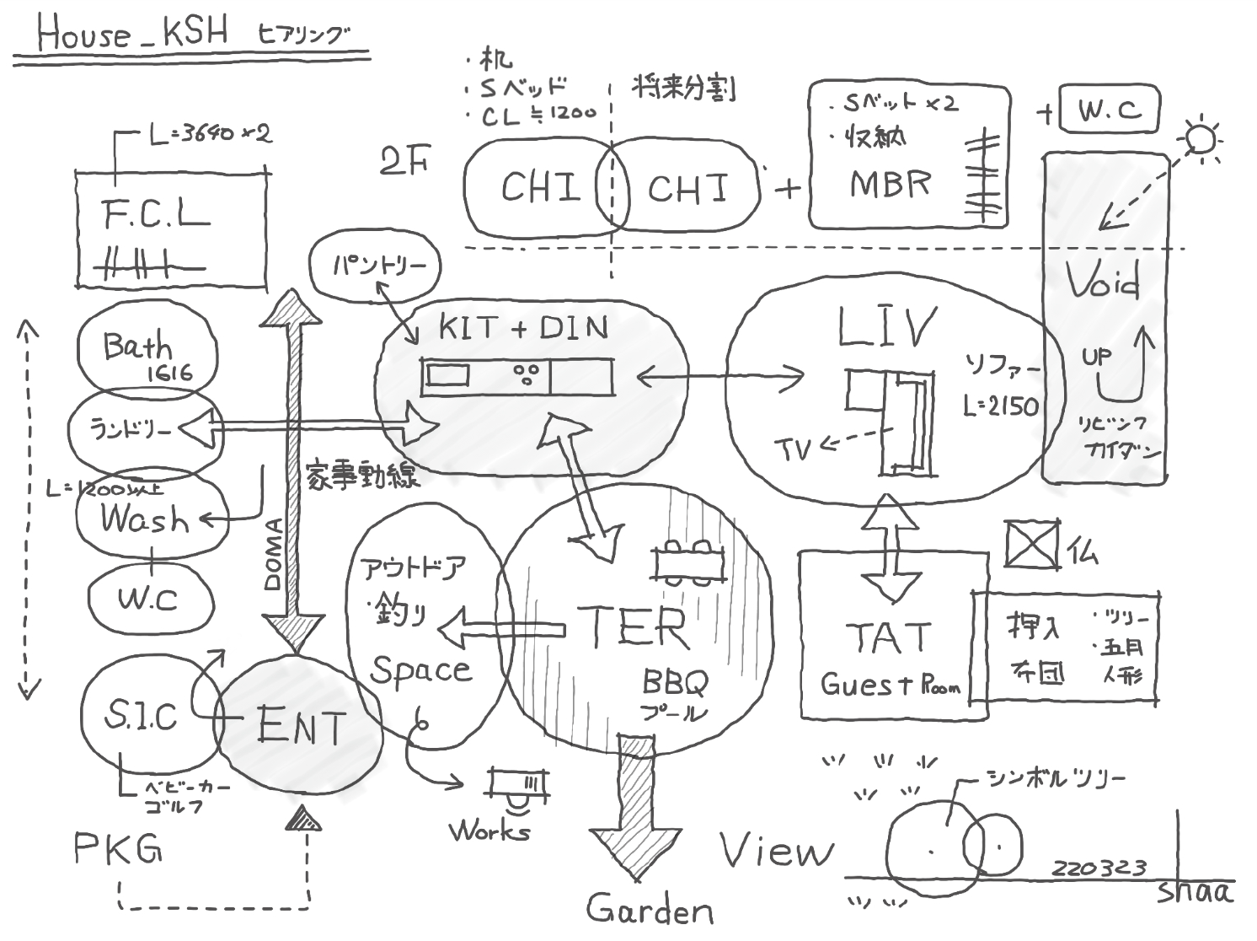 House_KSH ヒアリング
・机
・Sベッド
・CL≒1200
将来分割
2F
CHI
CHI
+
・Sベット×2
・収納
MBR
+ W.C
L=3640×2
F.C.L
パントリー
Bath
1616
ランドリー
L=1200以上
Wash
W.C
S.I.C
ベビーカー
ゴルフ
ENT
PKG
DOMA
家事動線
KIT + DIN
LIV
ソファー
L=2150
TV
Void
UP
リビング
カイダン
アウトドア
・釣り
Space
Works
TER
BBQ
プール
Garden
TAT
Guest Room
仏
押入
布団
・ツリー
・五月
人形
View
シンボルツリー
220323
shaa